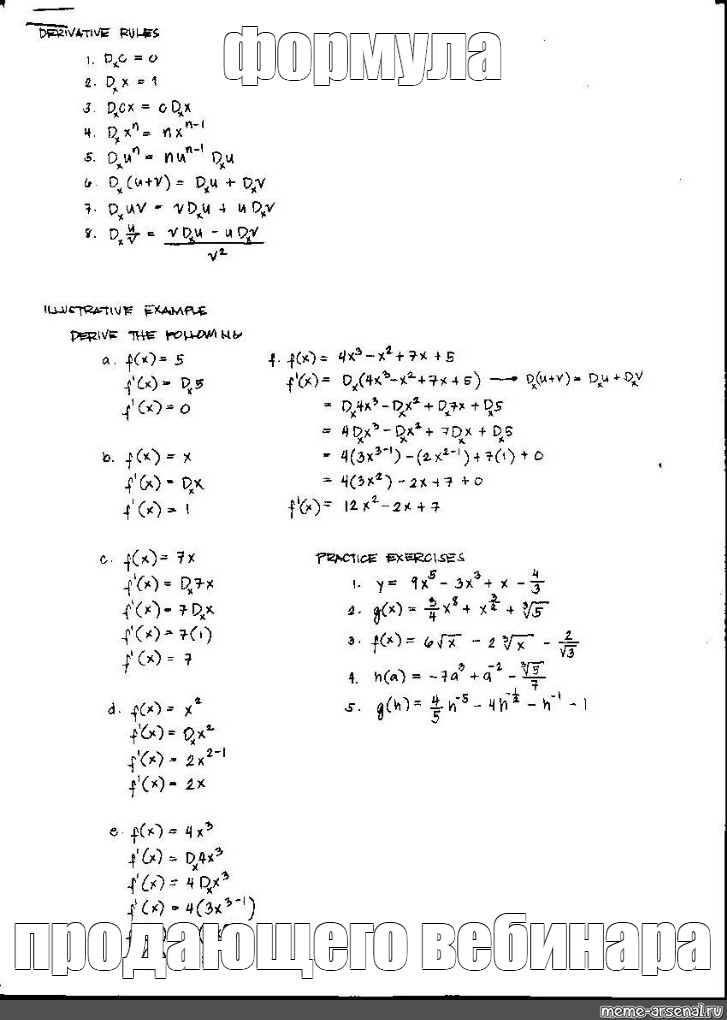 формула
DERIVATIVE RULES
1. DₓC = 0
2. Dₓx = 1
3. Dₓcx = c Dₓx
4. Dₓxⁿ = nxⁿ⁻¹
5. Dₓuⁿ = nuⁿ⁻¹ Dₓu
6. Dₓ(u+v) = Dₓu + Dₓv
7. Dₓuv = vDₓu + uDₓv
8. Dₓ u/v = (vDₓu - uDₓv)/v²
ILLUSTRATIVE EXAMPLE
DERIVE THE FOLLOWING
a. f(x) = 5
f'(x) = Dₓ5
f'(x) = 0
b. f(x) = x
f'(x) = Dₓx
f'(x) = 1
c. f(x) = 7x
f'(x) = Dₓ7x
f'(x) = 7Dₓx
f'(x) = 7(1)
f'(x) = 7
d. f(x) = x²
f'(x) = Dₓx²
f'(x) = 2x²⁻¹
f'(x) = 2x
e. f(x) = 4x³
f'(x) = Dₓ4x³
f'(x) = 4Dₓx³
f'(x) = 4(3x³⁻¹)
f. f(x) = 4x³-x²+7x+5
f'(x) = Dₓ(4x³-x²+7x+5) → Dₓ(u+v) = Dₓu + DₓV
= Dₓ4x³-Dₓx²+Dₓ7x+Dₓ5
= 4Dₓx³-Dₓx²+7Dₓx+Dₓ5
= 4(3x³⁻¹)-(2x²⁻¹)+7(1)+0
= 4(3x²)-2x+7+0
f'(x) = 12x²-2x+7
PRACTICE EXERCISES
1. y = 9x⁵-3x³+x-4/3
2. g(x) = 3/4 x⁸ + x^(3/2) + ∛5
3. f(x) = 6√x - 2∛x - 2/√3
4. h(a) = -7a³+a⁻²-∛5/7
5. g(h) = 4/5 h⁻⁵ - 4h^(-1/2) - h⁻¹ - 1
продающего вебинара
meme-arsenal.ru